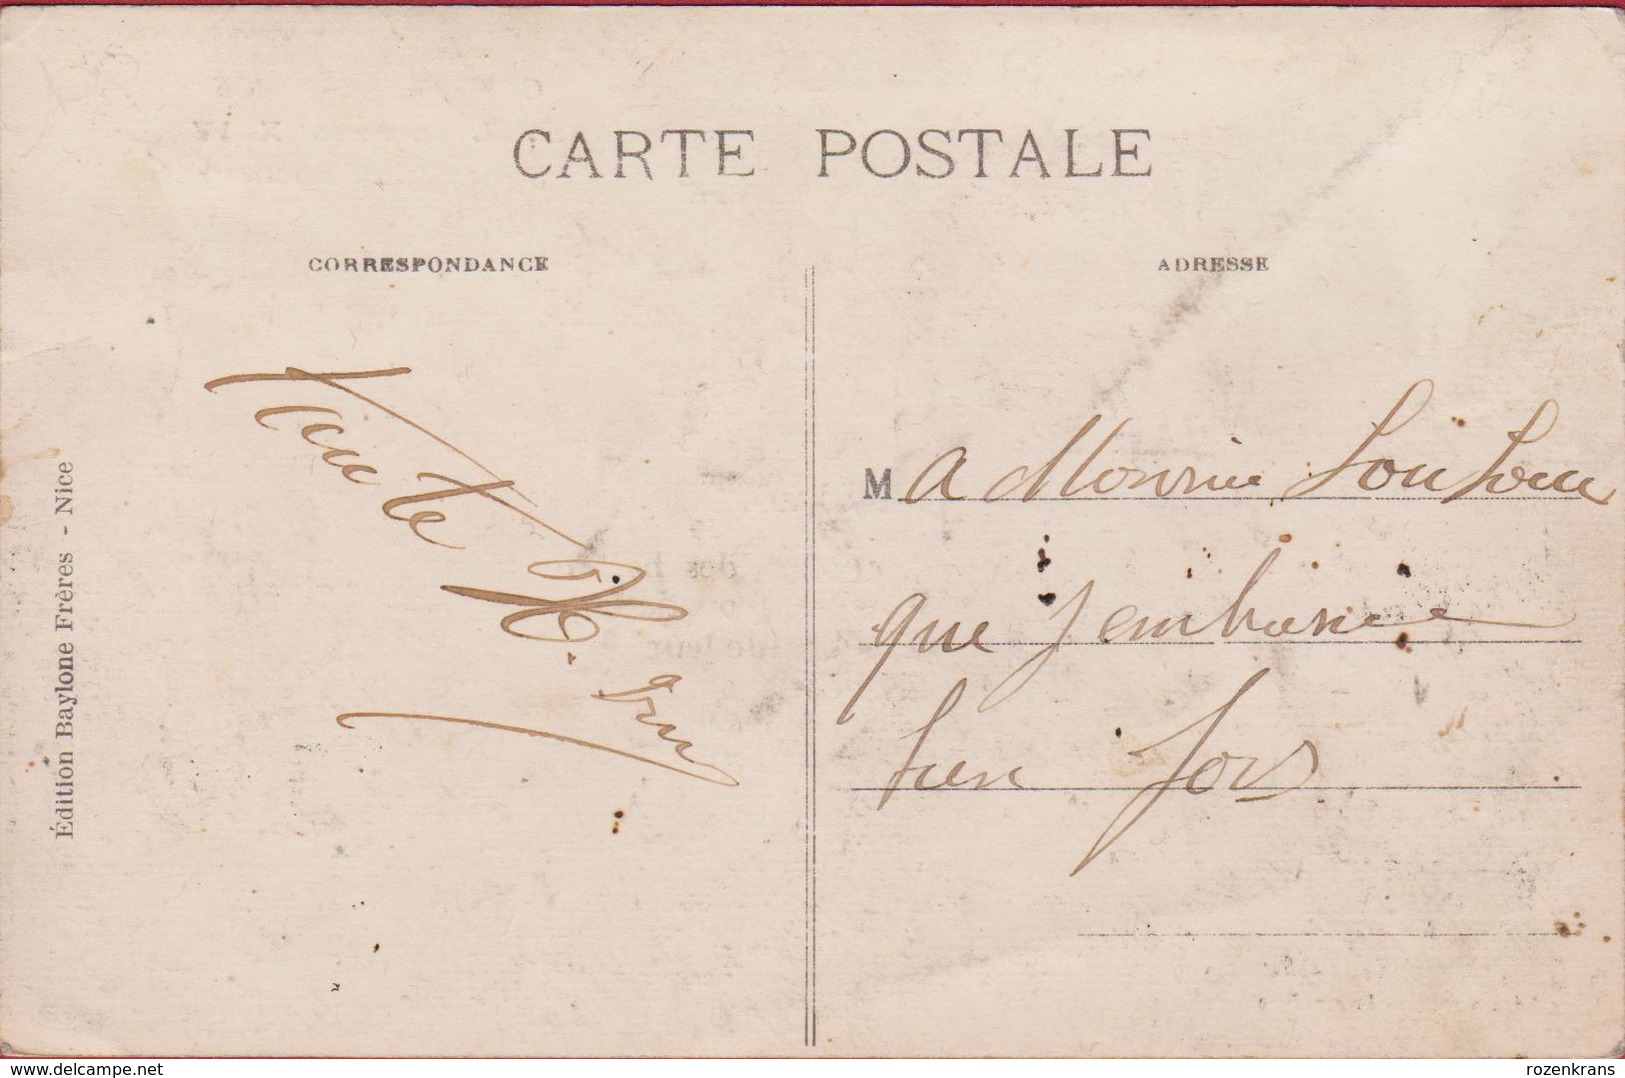 CARTE POSTALE
CORRESPONDANCE
ADRESSE
Édition Baylone Frères - Nice
Tante H.
M
a Monsieur Loulou
que j'embrasse
bien fors
delcampe.net
rozenkrans